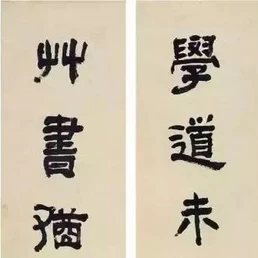 學道未
艸書猶